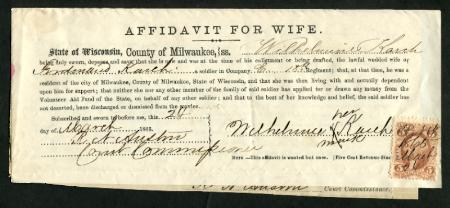 AFFIDAVIT FOR WIFE.
State of Wisconsin, County of Milwaukee, ss. Wilhelmine Rasch
being duly sworn, deposes and says that she is and was at the time of his enlistment or being drafted, the lawful wedded wife of
Ferdinand Rasch a soldier in Company Regiment; that, at that time, he was a
resident of the city of Milwaukee, County of Milwaukee, State of Wisconsin, and that she was then living with and dependent
upon him for support; that neither she nor any other member of the family of said soldier has applied for or drawn any money from the
Volunteer Aid Fund of the State, on behalf of any other soldier; and that to the best of her knowledge and belief, the said soldier has
not deserted, been discharged or dismissed from the service.
Subscribed and sworn to before me, this 28
day of March 1865.
Wilhelmine her Rasch
mark
Court Commissioner
NOTE.—This affidavit is wanted but once. [Five Cent Revenue Stamp
Court Commissioner.